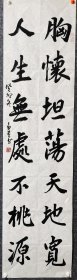 胸懷坦蕩天地寬
人生無處不桃源